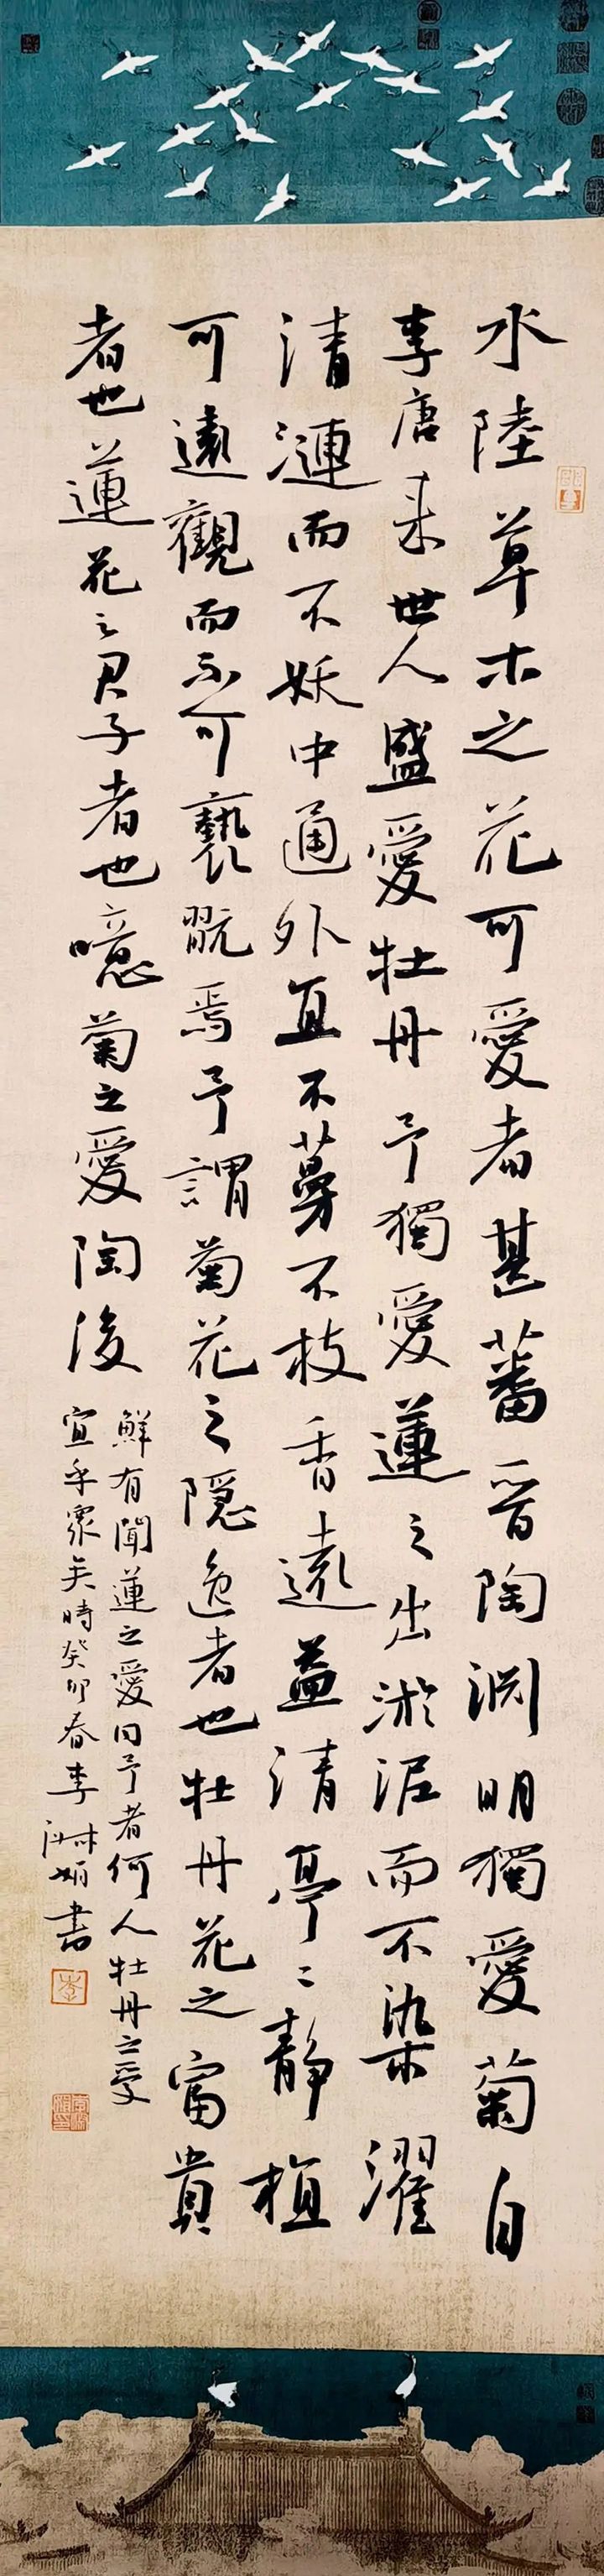 水陸草木之花可愛者甚蕃晉陶淵明獨愛菊自
李唐来世人盛愛牡丹予獨愛蓮之出淤泥而不染濯
清漣而不妖中通外直不蔓不枝香遠益清亭〻靜植
可遠觀而不可褻翫焉予謂菊花之隱逸者也牡丹花之富貴
者也蓮花之君子者也噫菊之愛陶後
鮮有聞蓮之愛同予者何人牡丹之愛
宜乎衆矣時癸卯春李淋娟書